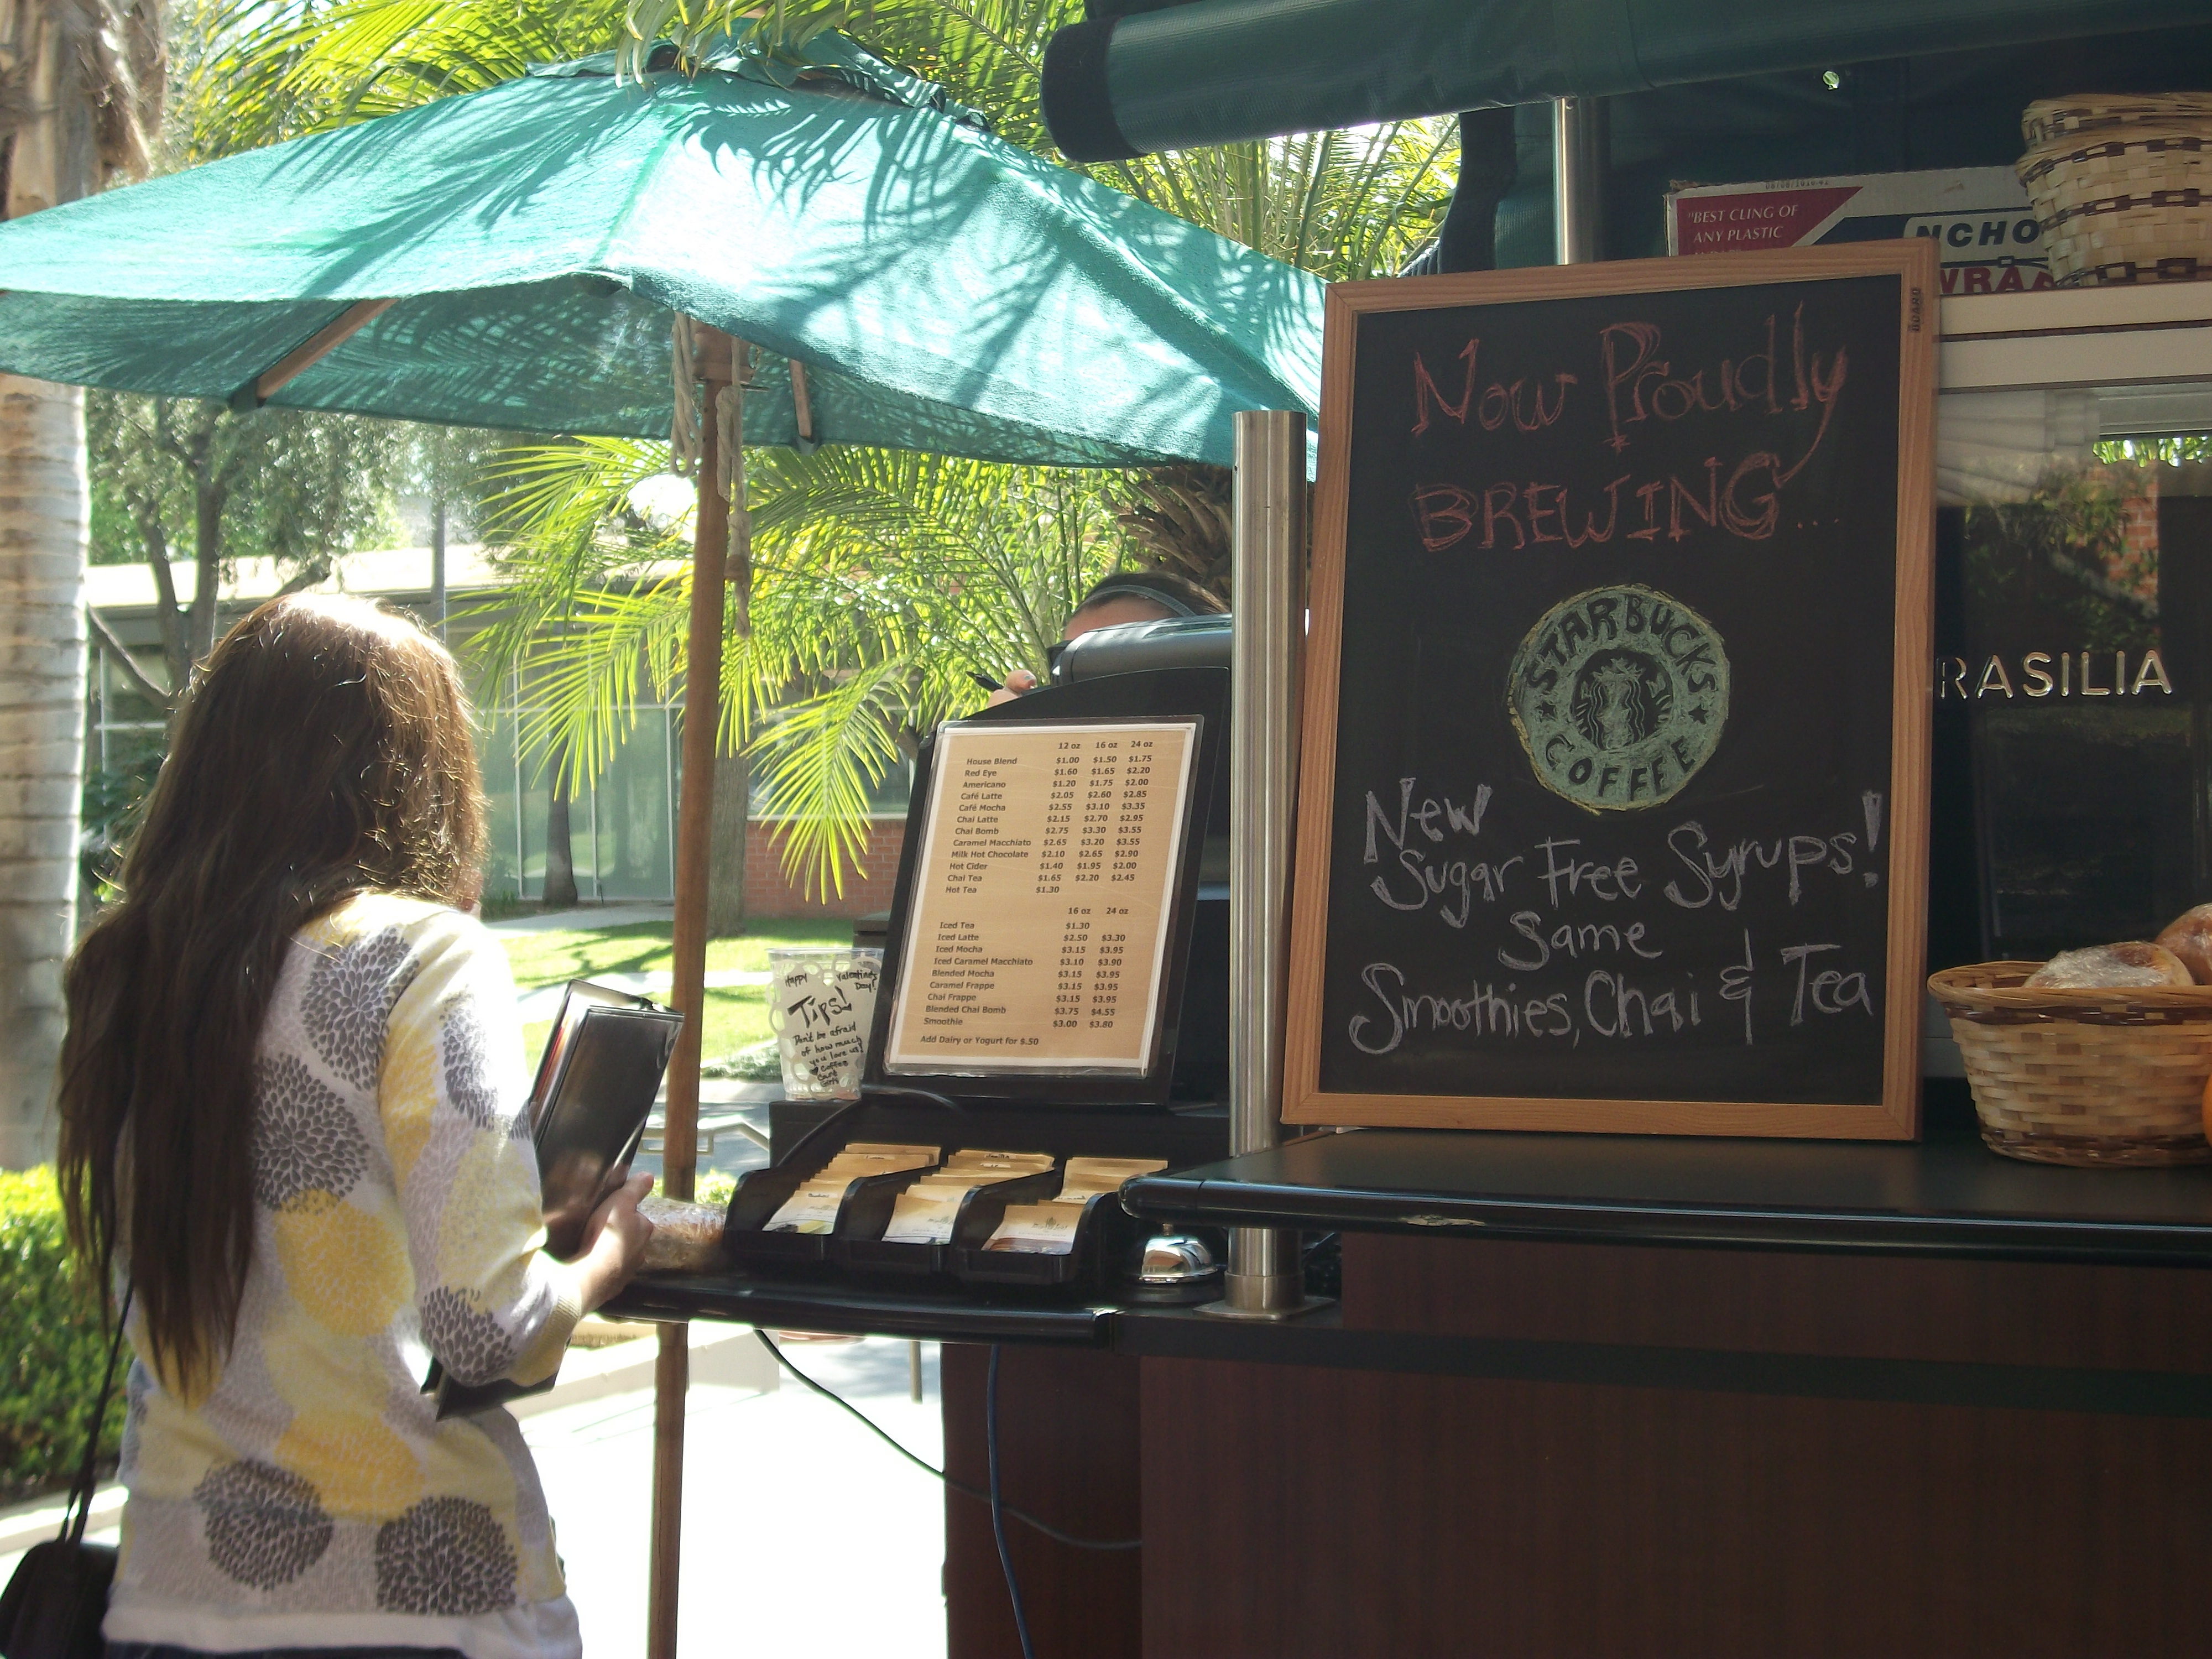 "BEST CLING OF
ANY PLASTIC
NCHO
WRA
BOARD
Now Proudly
BREWING...
STARBUCKS
COFFEE
New
Sugar Free Syrups!
Same
Smoothies, Chai & Tea
RASILIA
12 oz 16 oz 24 oz
House Blend $1.00 $1.50 $1.75
Red Eye $1.60 $1.65 $2.20
Americano $1.20 $1.75 $2.00
Café Latte $2.05 $2.60 $2.85
Café Mocha $2.55 $3.10 $3.35
Chai Latte $2.15 $2.70 $2.95
Chai Bomb $2.75 $3.30 $3.55
Caramel Macchiato $2.65 $3.20 $3.55
Milk Hot Chocolate $2.10 $2.65 $2.90
Hot Cider $1.40 $1.95 $2.00
Chai Tea $1.65 $2.20 $2.45
Hot Tea $1.30
16 oz 24 oz
Iced Tea $1.30
Iced Latte $2.50 $3.30
Iced Mocha $3.15 $3.95
Iced Caramel Macchiato $3.10 $3.90
Blended Mocha $3.15 $3.95
Caramel Frappe $3.15 $3.95
Chai Frappe $3.15 $3.95
Blended Chai Bomb $3.75 $4.55
Smoothie $3.00 $3.80
Add Dairy or Yogurt for $.50
Happy Valentine's
Day!
Tips!
Don't be afraid
of how much
you love us!
Coffee
Cart
Girls